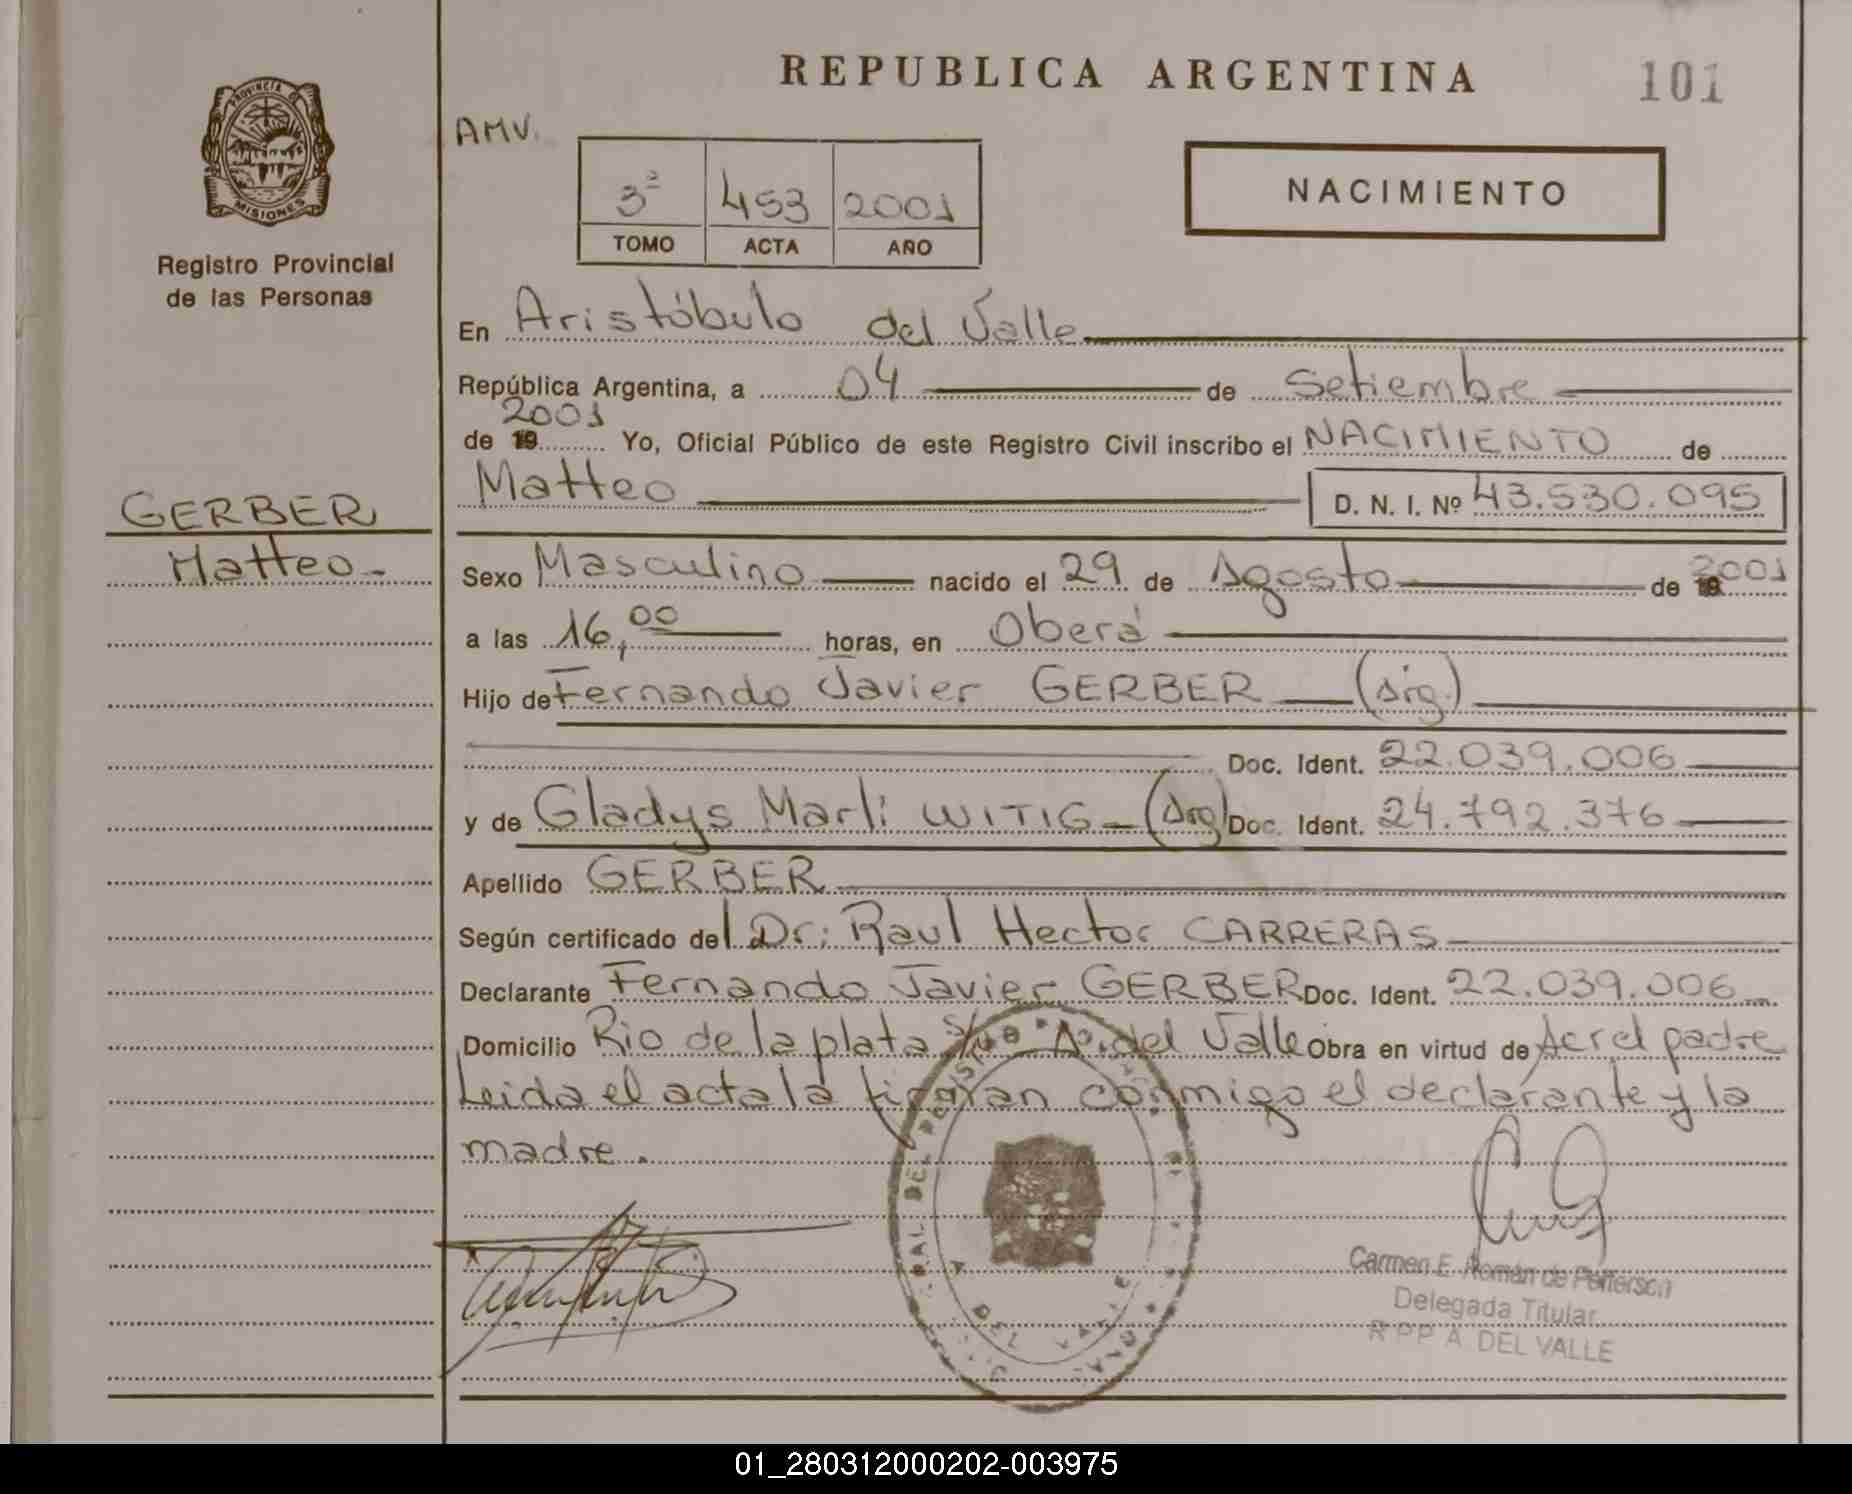 REPUBLICA ARGENTINA
101
PROVINCIA DE
MISIONES
Registro Provincial
de las Personas
AMV.
3º 453 2001
TOMO ACTA AÑO
NACIMIENTO
En Aristóbulo del Valle
República Argentina, a 04 de Setiembre
2001
de 19 Yo, Oficial Público de este Registro Civil inscribo el NACIMIENTO de
Matteo D. N. I. Nº 43.530.095
GERBER
Matteo
Sexo Masculino nacido el 29 de Agosto de 2001
a las 16,00 horas, en Oberá
Hijo de Fernando Javier GERBER (Arg.)
Doc. Ident. 22.039.006
y de Gladys Marli WITIG (Arg) Doc. Ident. 24.792.376
Apellido GERBER
Según certificado del Dr: Raul Hector CARRERAS
Declarante Fernando Javier GERBER Doc. Ident. 22.039.006
Domicilio Rio de la plata s/nº Aº. del Valle Obra en virtud de Ser el padre
Leida el acta la firman conmigo el declarante y la
madre.
Carmen E. Román de
Delegada Titular
R P P A. DEL VALLE
01_280312000202-003975